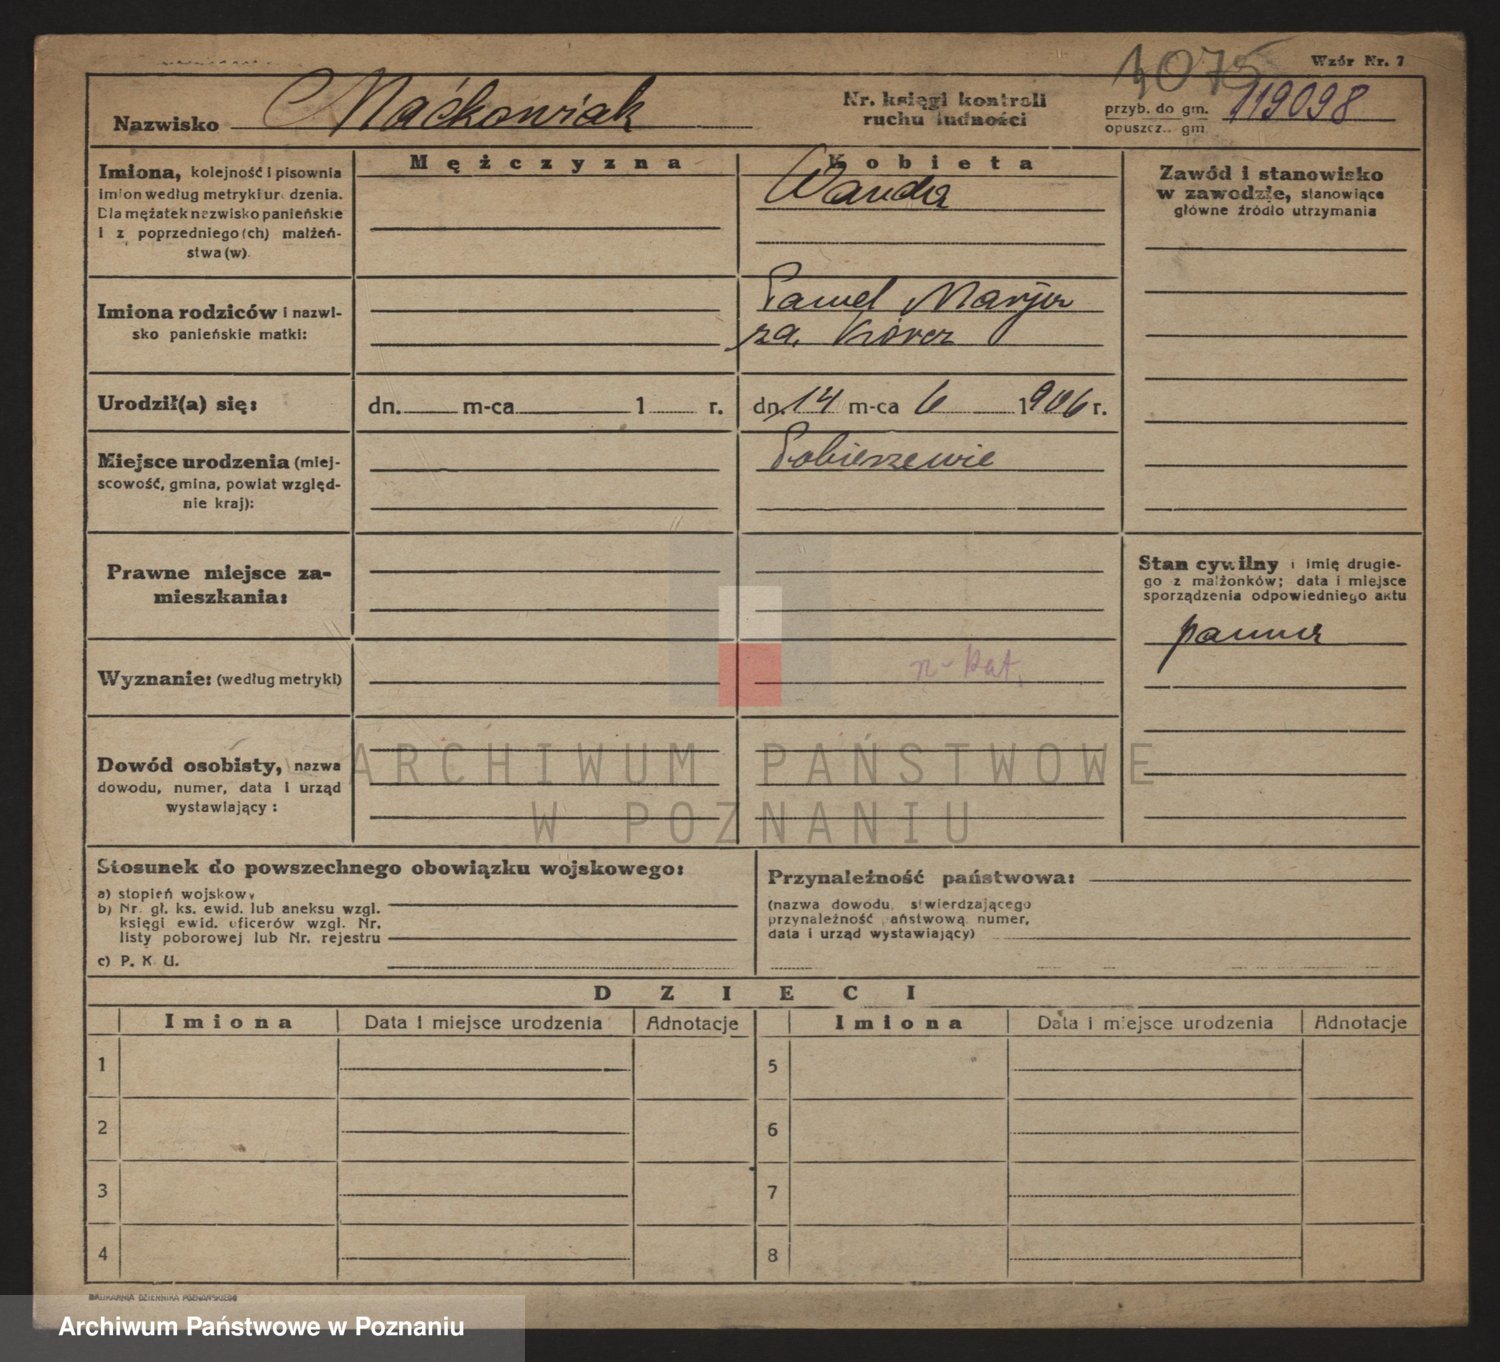 1075
Wzór Nr. 7
Nazwisko Maćkowiak
Nr. księgi kontroli
ruchu ludności
przyb. do gm. 119098
opuszcz.. gm
Mężczyzna
Kobieta
Imiona, kolejność i pisownia
imion według metryki ur. dzenia.
Dla mężatek nazwisko panieńskie
i z poprzedniego (ch) małżeń-
stwa (w).
Wanda
Zawód i stanowisko
w zawodzie, stanowiące
główne źródło utrzymania
Imiona rodziców i nazwi-
sko panieńskie matki:
Paweł Marja
Urodził(a) się:
dn. m-ca 1 r.
dn. 14 m-ca 6 1906 r.
Miejsce urodzenia (miej-
scowość, gmina, powiat względ-
nie kraj):
Prawne miejsce za-
mieszkania:
Stan cywilny i imię drugie-
go z małżonków; data i miejsce
sporządzenia odpowiedniego aktu
panna
Wyznanie: (według metryki)
r-kat.
Dowód osobisty, nazwa
dowodu, numer, data i urząd
wystawiający :
ARCHIWUM PAŃSTWOWE
W POZNANIU
Stosunek do powszechnego obowiązku wojskowego:
a) stopień wojskowy
b) Nr. gł. ks. ewid. lub aneksu wzgl.
księgi ewid. oficerów wzgl. Nr.
listy poborowej lub Nr. rejestru
c) P. K U.
Przynależność państwowa:
(nazwa dowodu, stwierdzającego
przynależność państwową, numer,
data i urząd wystawiający)
DZIECI
Imiona Data i miejsce urodzenia Adnotacje Imiona Data i miejsce urodzenia Adnotacje
1 5
2 6
3 7
4 8
DRUKARNIA DZIENNIKA POZNAŃSKIEGO
Archiwum Państwowe w Poznaniu